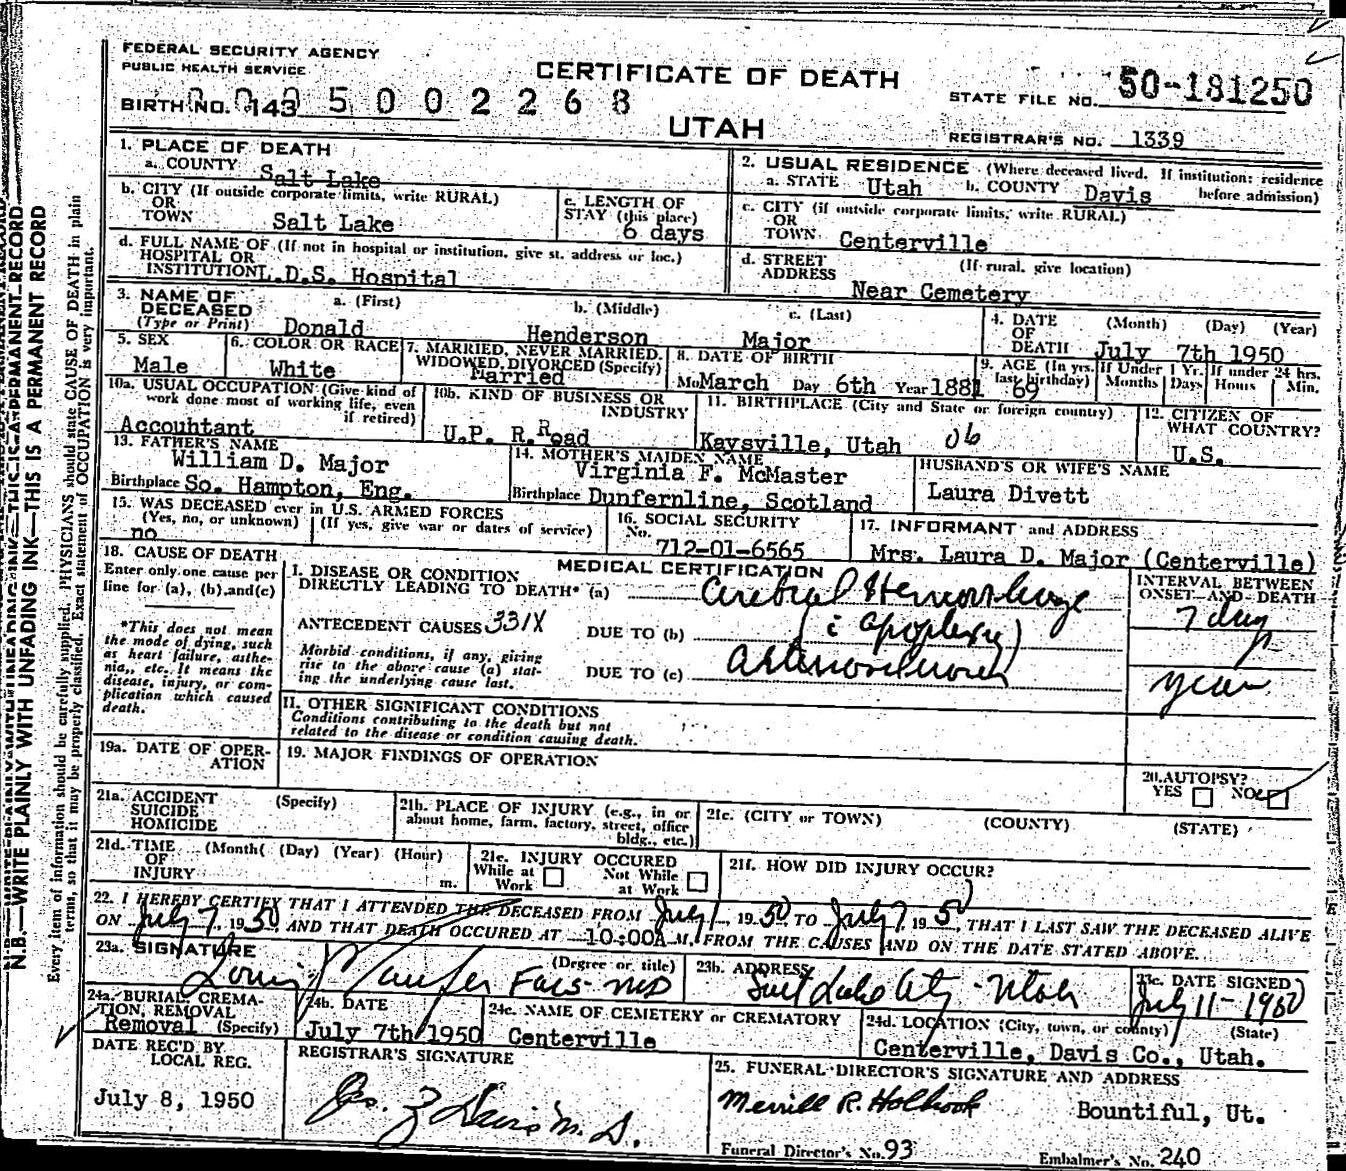 FEDERAL SECURITY AGENCY
PUBLIC HEALTH SERVICE
CERTIFICATE OF DEATH
STATE FILE NO. 50-181250
BIRTH NO. 143 5 0 0 2 2 6 8
UTAH
REGISTRAR'S NO. 1339
1. PLACE OF DEATH
a. COUNTY Salt Lake
b. CITY (If outside corporate limits, write RURAL)
OR
TOWN Salt Lake
c. LENGTH OF
STAY (this place)
6 days
d. FULL NAME OF (If not in hospital or institution, give st. address or loc.)
HOSPITAL OR
INSTITUTION L.D.S. Hospital
2. USUAL RESIDENCE (Where deceased lived. If institution: residence
a. STATE Utah b. COUNTY Davis before admission)
c. CITY (if outside corporate limits, write RURAL)
OR
TOWN Centerville
d. STREET (If rural, give location)
ADDRESS
Near Cemetery
3. NAME OF a. (First) b. (Middle) c. (Last)
DECEASED
(Type or Print) Donald Henderson Major
4. DATE (Month) (Day) (Year)
OF
DEATH July 7th 1950
5. SEX
Male
6. COLOR OR RACE
White
7. MARRIED, NEVER MARRIED,
WIDOWED, DIVORCED (Specify)
Married
8. DATE OF BIRTH
Mo March Day 6th Year 1881
9. AGE (In yrs. last birthday) 69
If Under 1 Yr. Months Days
If under 24 hrs. Hours Min.
10a. USUAL OCCUPATION (Give kind of
work done most of working life, even
if retired)
Accouhtant
10b. KIND OF BUSINESS OR
INDUSTRY
U.P. R.Road
11. BIRTHPLACE (City and State or foreign country)
Kaysville, Utah 06
12. CITIZEN OF
WHAT COUNTRY?
U.S.
13. FATHER'S NAME
William D. Major
Birthplace So. Hampton, Eng.
14. MOTHER'S MAIDEN NAME
Virginia F. McMaster
Birthplace Dunfernline, Scotland
HUSBAND'S OR WIFE'S NAME
Laura Divett
15. WAS DECEASED ever in U.S. ARMED FORCES
(Yes, no, or unknown) (If yes, give war or dates of service)
no
16. SOCIAL SECURITY
No.
712-01-6565
17. INFORMANT and ADDRESS
Mrs. Laura D. Major (Centerville)
18. CAUSE OF DEATH
Enter only one cause per
line for (a), (b), and (c)
*This does not mean
the mode of dying, such
as heart failure, asthe-
nia,, etc. It means the
disease, injury, or com-
plication which caused
death.
MEDICAL CERTIFICATION
I. DISEASE OR CONDITION
DIRECTLY LEADING TO DEATH* (a) Cerebral Hemorrhage
ANTECEDENT CAUSES 331X DUE TO (b) ( c apoplexy)
Morbid conditions, if any, giving
rise to the above cause (a) stat-
ing the underlying cause last.
DUE TO (c) arteriosclerosis
INTERVAL BETWEEN
ONSET AND DEATH
7 day
year
II. OTHER SIGNIFICANT CONDITIONS
Conditions contributing to the death but not
related to the disease or condition causing death.
19a. DATE OF OPER-
ATION
19. MAJOR FINDINGS OF OPERATION
20. AUTOPSY?
YES NO
21a. ACCIDENT (Specify)
SUICIDE
HOMICIDE
21b. PLACE OF INJURY (e.g., in or
about home, farm, factory, street, office
bldg., etc.)
21c. (CITY or TOWN) (COUNTY) (STATE)
21d. TIME (Month( (Day) (Year) (Hour)
OF
INJURY m.
21e. INJURY OCCURED
While at Work Not While at Work
21f. HOW DID INJURY OCCUR?
22. I HEREBY CERTIFY THAT I ATTENDED THE DECEASED FROM July 1, 1950 TO July 7, 1950, THAT I LAST SAW THE DECEASED ALIVE
ON July 7, 1950 AND THAT DEATH OCCURED AT 10:00A M. FROM THE CAUSES AND ON THE DATE STATED ABOVE.
23a. SIGNATURE (Degree or title)
Facs- MD
23b. ADDRESS
Salt Lake City - Utah
23c. DATE SIGNED
July 11 - 1950
24a. BURIAL, CREMA-
TION, REMOVAL
Removal (Specify)
24b. DATE
July 7th 1950
24c. NAME OF CEMETERY or CREMATORY
Centerville
24d. LOCATION (City, town, or county) (State)
Centerville, Davis Co., Utah.
DATE REC'D BY
LOCAL REG.
July 8, 1950
REGISTRAR'S SIGNATURE
25. FUNERAL DIRECTOR'S SIGNATURE AND ADDRESS
Merrill R. Holbrook Bountiful, Ut.
Funeral Director's No. 93 Embalmer's No. 240
N.B.—WRITE PLAINLY WITH UNFADING INK—THIS IS A PERMANENT RECORD
Every item of information should be carefully supplied. PHYSICIANS should state CAUSE OF DEATH in plain
terms, so that it may be properly classified. Exact statement of OCCUPATION is very important.